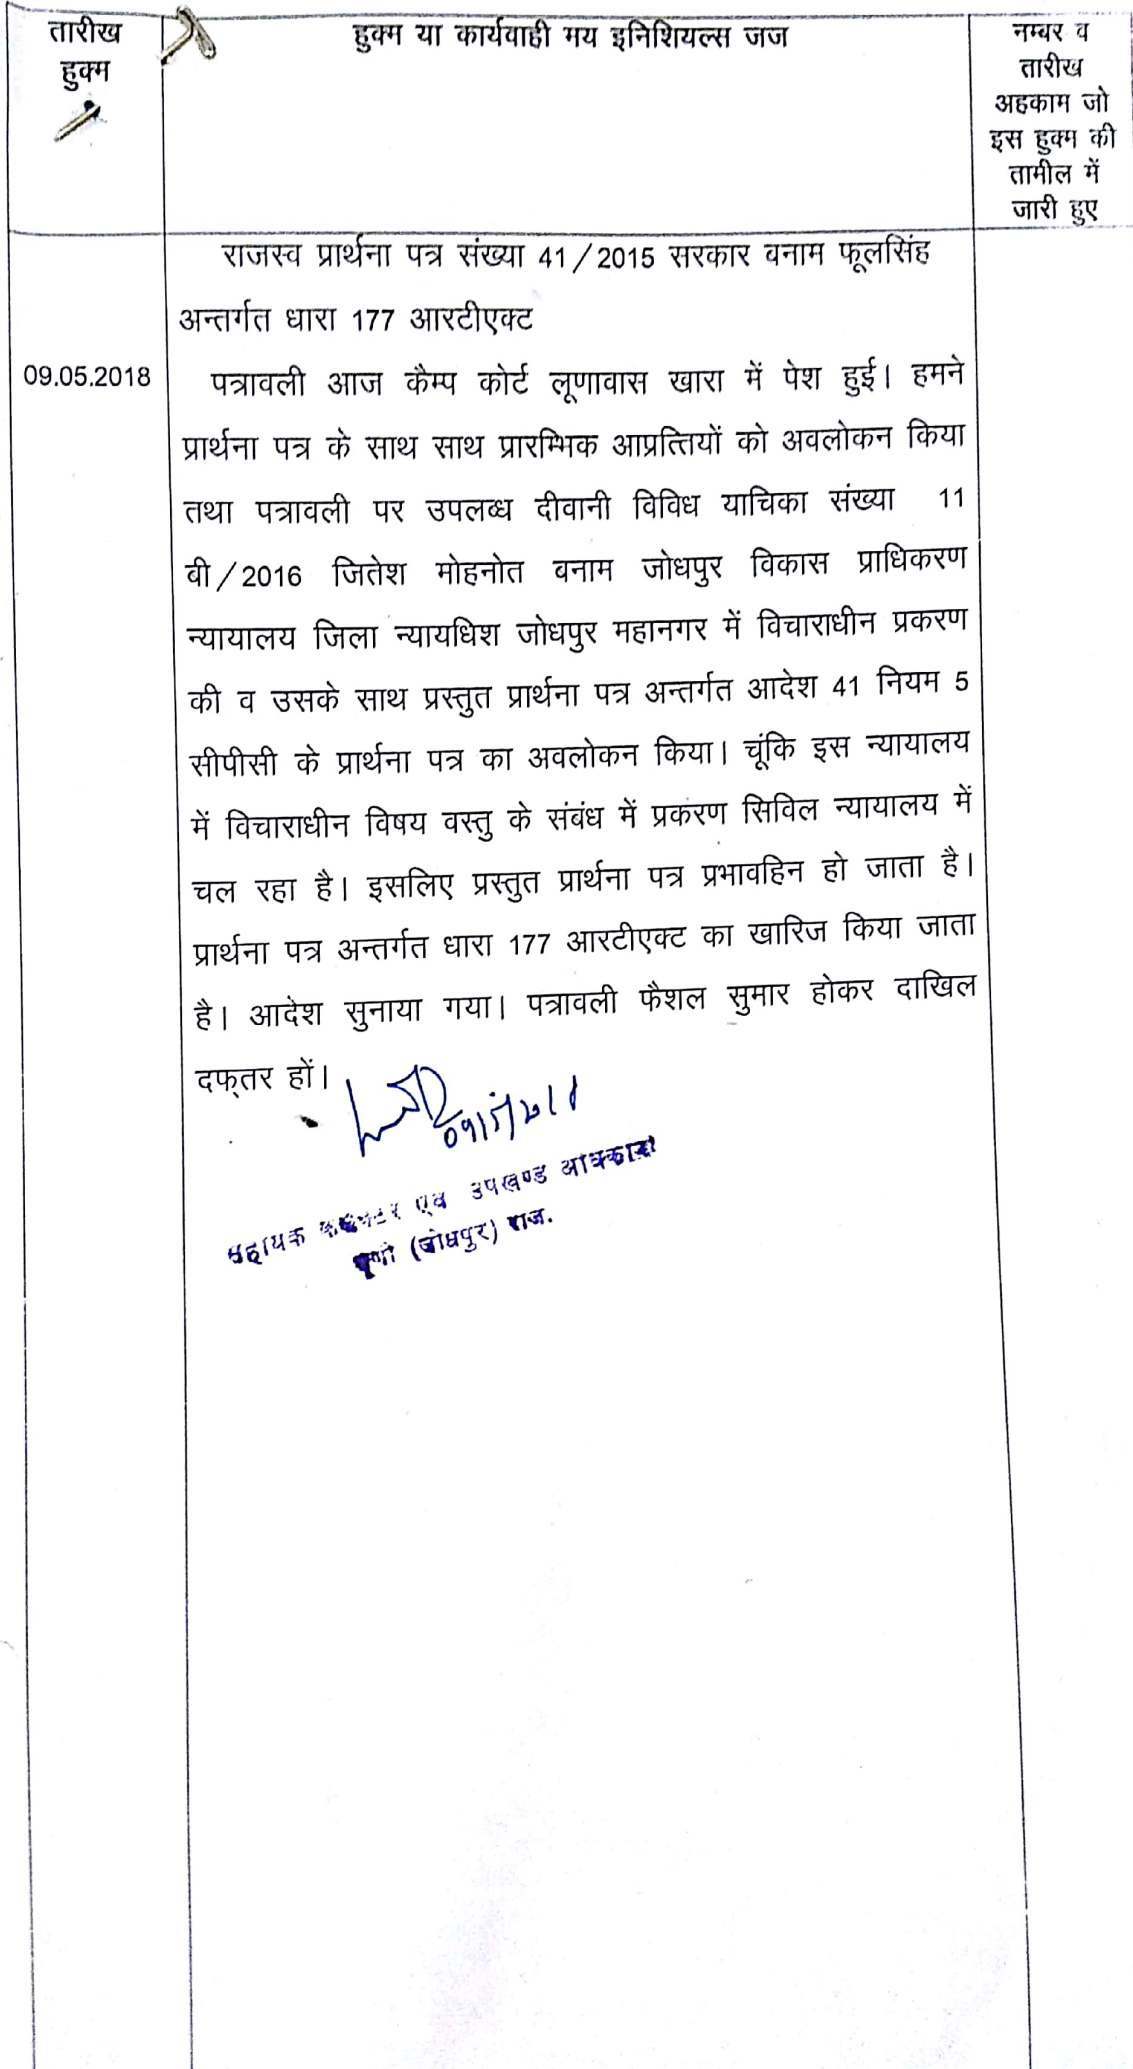 तारीख
हुक्म
हुक्म या कार्यवाही मय इनिशियल्स जज
नम्बर व
तारीख
अहकाम जो
इस हुक्म की
तामील में
जारी हुए
राजस्व प्रार्थना पत्र संख्या 41/2015 सरकार बनाम फूलसिंह
अन्तर्गत धारा 177 आरटीएक्ट
09.05.2018
पत्रावली आज कैम्प कोर्ट लूणावास खारा में पेश हुई। हमने
प्रार्थना पत्र के साथ साथ प्रारम्भिक आप्रत्तियों को अवलोकन किया
तथा पत्रावली पर उपलब्ध दीवानी विविध याचिका संख्या 11
बी/2016 जितेश मोहनोत बनाम जोधपुर विकास प्राधिकरण
न्यायालय जिला न्यायधिश जोधपुर महानगर में विचाराधीन प्रकरण
की व उसके साथ प्रस्तुत प्रार्थना पत्र अन्तर्गत आदेश 41 नियम 5
सीपीसी के प्रार्थना पत्र का अवलोकन किया। चूंकि इस न्यायालय
में विचाराधीन विषय वस्तु के संबंध में प्रकरण सिविल न्यायालय में
चल रहा है। इसलिए प्रस्तुत प्रार्थना पत्र प्रभावहिन हो जाता है।
प्रार्थना पत्र अन्तर्गत धारा 177 आरटीएक्ट का खारिज किया जाता
है। आदेश सुनाया गया। पत्रावली फैशल सुमार होकर दाखिल
दफ्तर हों।
सहायक एवं उपखण्ड
(जोधपुर) राज.